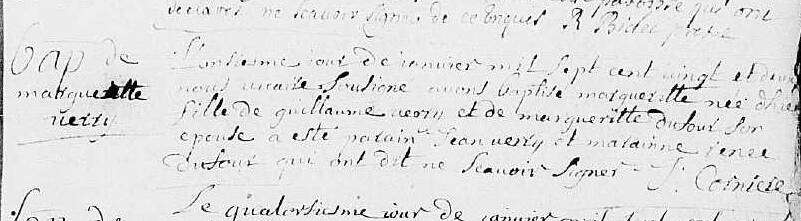 declarés ne scavoir signer de ce Enquis R Billet pretre
bap de
margueritte
verry
L'onsiesme jour de janvier mil sept cent vingt et deux
nous vicaire sousigné avons baptisé margueritte née d'hier
fille de guillaume verry et de margueritte dufour son
epouse a esté parain Jean verry et maraine renee
dufour qui ont dit ne scavoir signer
Le quatorsiesme jour de janvier mil